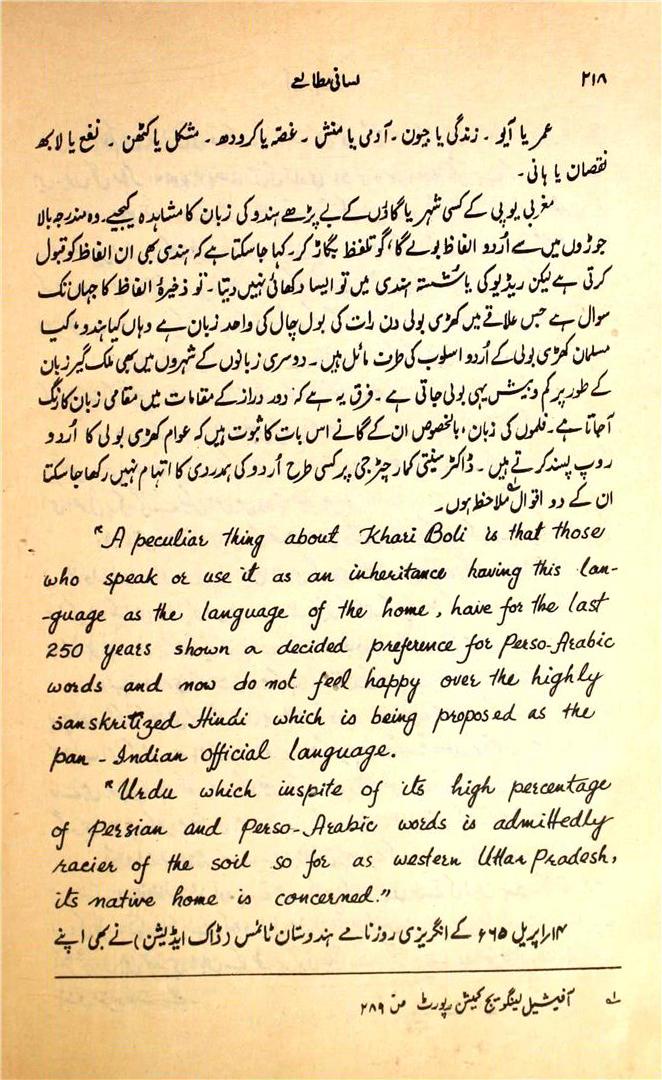 ۲۱۸ لسانی مطالعے
عمر یا آیو ۔ زندگی یا جیون ۔ آدمی یا منش ۔ غصّہ یا کرودھ ۔ مشکل یا کٹھن ۔ نفع یا لابھ
نقصان یا ہانی ۔
مغربی یوپی کے کسی شہر یا گاؤں کے بے پڑھے ہندو کی زبان کا مشاہدہ کیجیے ۔ وہ مندرجہ بالا
جوڑوں میں سے اُردو الفاظ بولے گا، گو تلفظ بگاڑ کر ۔ کہا جا سکتا ہے کہ ہندی بھی ان الفاظ کو قبول
کرتی ہے لیکن ریڈیو کی یا شستہ ہندی میں تو ایسا دکھائی نہیں دیتا ۔ تو ذخیرۂ الفاظ کا جہاں تک
سوال ہے جس علاقے میں کھڑی بولی دن رات کی بول چال کی واحد زبان ہے وہاں کیا ہندو، کیا
مسلمان کھڑی بولی کے اُردو اسلوب کی طرف مائل ہیں ۔ دوسری زبانوں کے شہروں میں بھی ملک گیر زبان
کے طور پر کم و بیش یہی بولی جاتی ہے ۔ فرق یہ ہے کہ دور دراز کے مقامات میں مقامی زبان کا رنگ
آ جاتا ہے ۔ فلموں کی زبان، بالخصوص ان کے گانے اس بات کا ثبوت ہیں کہ عوام کھڑی بولی کا اُردو
روپ پسند کرتے ہیں ۔ ڈاکٹر سنیتی کمار چٹرجی پر کسی طرح اُردو کی ہمدردی کا اتہام نہیں رکھا جا سکتا
ان کے دو اقوال ؂۱ ملاحظہ ہوں ۔
"A peculiar thing about Khari Boli is that those
who speak or use it as an inheritance having this lan-
-guage as the language of the home, have for the last
250 years shown a decided preference for Perso-Arabic
words and now do not feel happy over the highly
sanskritized Hindi which is being proposed as the
pan-Indian official language.
"Urdu which inspite of its high percentage
of Persian and Perso-Arabic words is admittedly
racier of the soil so far as western Uttar Pradesh,
its native home is concerned."
۱۴ اپریل ۶۶۵ کے انگریزی روزنامے ہندوستان ٹائمس (ڈاک ایڈیشن) نے بھی اپنے
؂۱ آفیشیل لینگویج کمیشن رپورٹ ص ۲۸۹